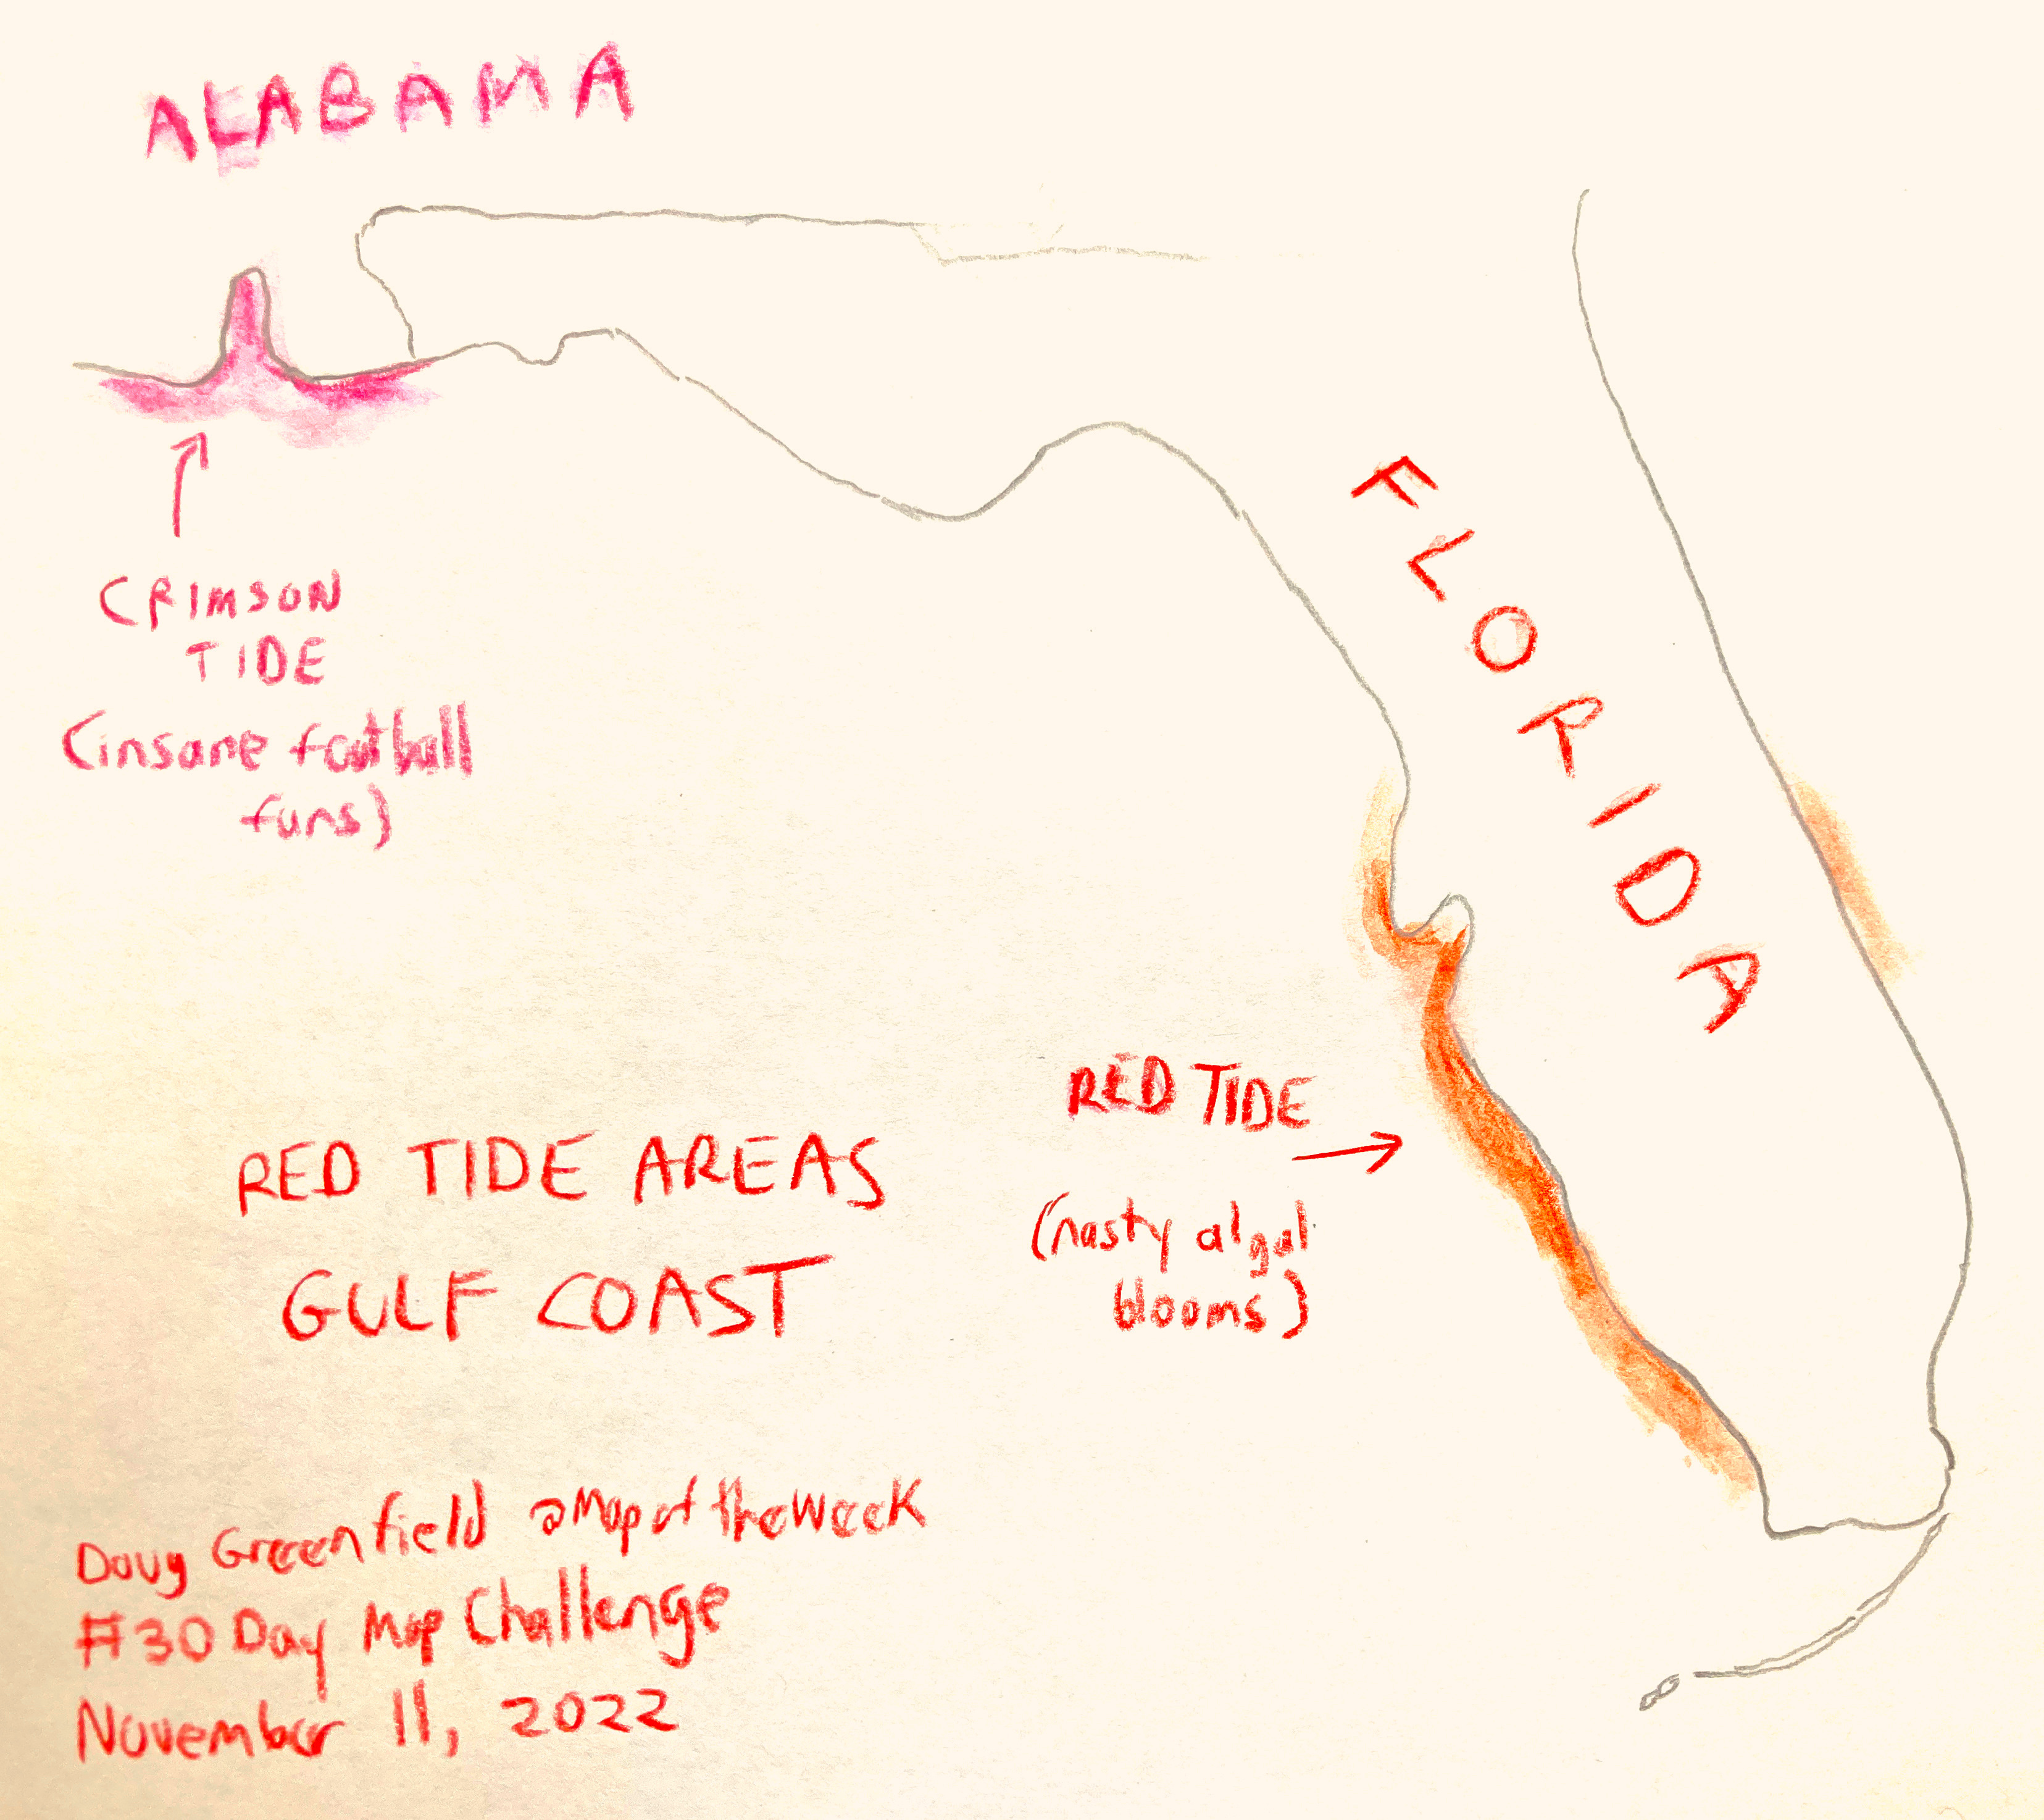 ALABAMA
FLORIDA
CRIMSON
TIDE
(insane football
fans)
RED TIDE
(nasty algal
blooms)
RED TIDE AREAS
GULF COAST
Doug Greenfield @MapoftheWeek
#30DayMapChallenge
November 11, 2022